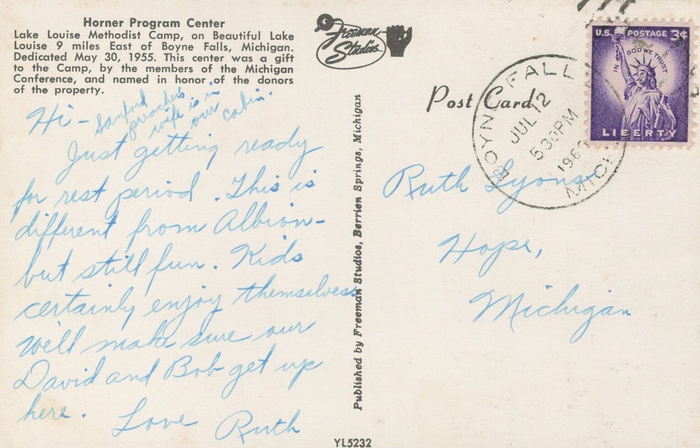 Horner Program Center
Lake Louise Methodist Camp, on Beautiful Lake
Louise 9 miles East of Boyne Falls, Michigan.
Dedicated May 30, 1955. This center was a gift
to the Camp, by the members of the Michigan
Conference, and named in honor of the donors
of the property.
Hi -
Sanford
preacher's
wife is in
our cabin.
Just getting ready
for rest period. This is
different from Albion -
but still fun. Kids
certainly enjoy themselves.
We'll make sure our
David and Bob get up
here. Love Ruth
Freeman
Studios
Published by Freeman Studios, Berrien Springs, Michigan
YL5232
Post Card
BOYNE FALLS
JUL 12
5 30 PM
MICH
U.S. POSTAGE 3¢
IN GOD WE TRUST
LIBERTY
Ruth Lyons
Hope,
Michigan